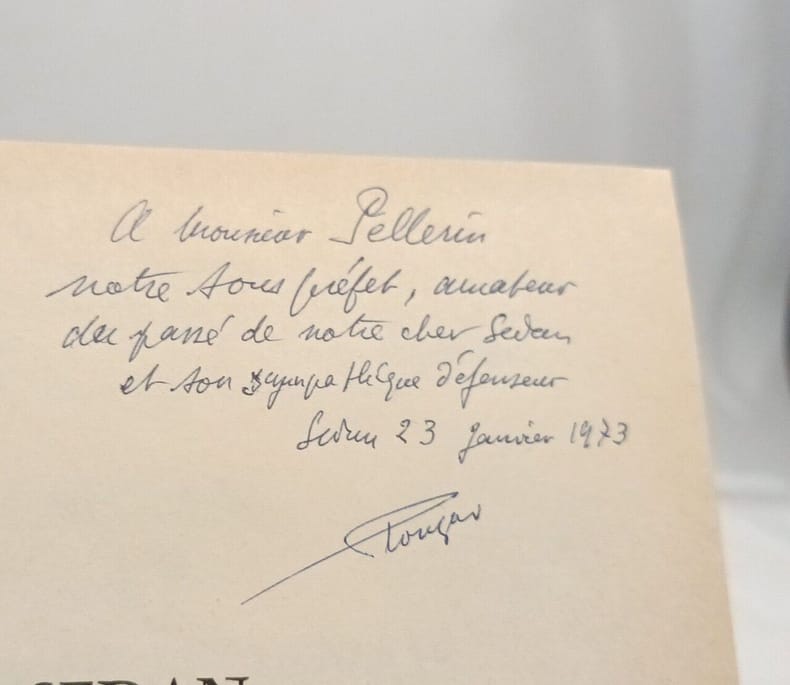 A Monsieur Pellerin
notre sous préfet, amateur
du passé de notre cher Sedan
et son sympathique défenseur
Sedan 23 Janvier 1973
SEDAN